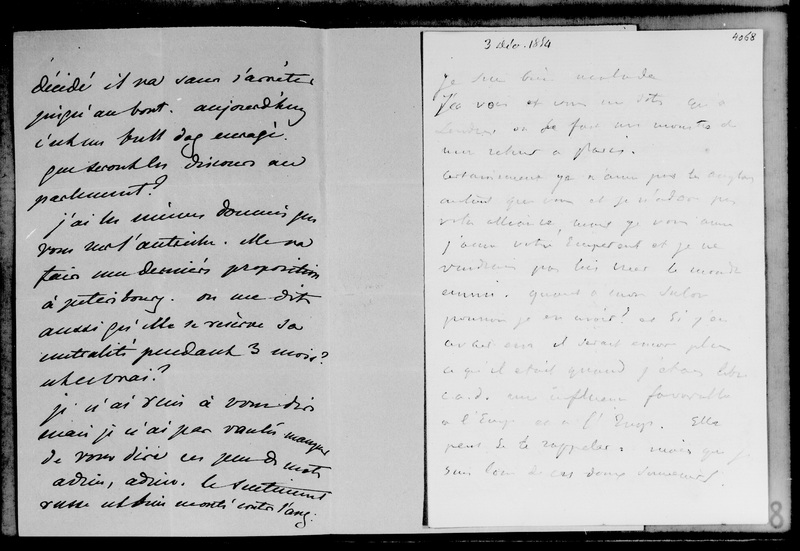 décidé il va sans s'arrêter
jusqu'au bout. aujourd'huy
c'est un bull dog enragé.
que seront les discours au
parlement?
j'ai les mêmes données que
vous sur l'autriche. elle va
faire une dernière proposition
à petersbourg. on me dit
aussi qu'elle se réserve sa
neutralité pendant 3 mois?
est ce vrai?
je n'ai rien à vous dire
mais je n'ai pas voulu manquer
de vous dire ces peu de mots
adieu, adieu. le sentiment
russe est bien monté contre l'ang.
4068
3 déc. 1854
Je suis bien
vous et vous me dites qu'à
Londres on se fait un monstre de
mon retour à Paris.
Certainement je n'aime pas les anglais
autant que vous et je n'adore pas
votre alliance, mais je vous aime
j'aime votre Empereur et je ne
voudrais pas les voir le monde
ennemi. quant à mon salon
pourrai je en avoir? et si j'en
avais un il serait encore plus
ce qu'il était quand j'étais libre
c.a.d. une influence favorable
à l'Emp. et à l'Emp. Elle
peut se le rappeler. mais que je
suis loin de ces doux souvenirs!
8